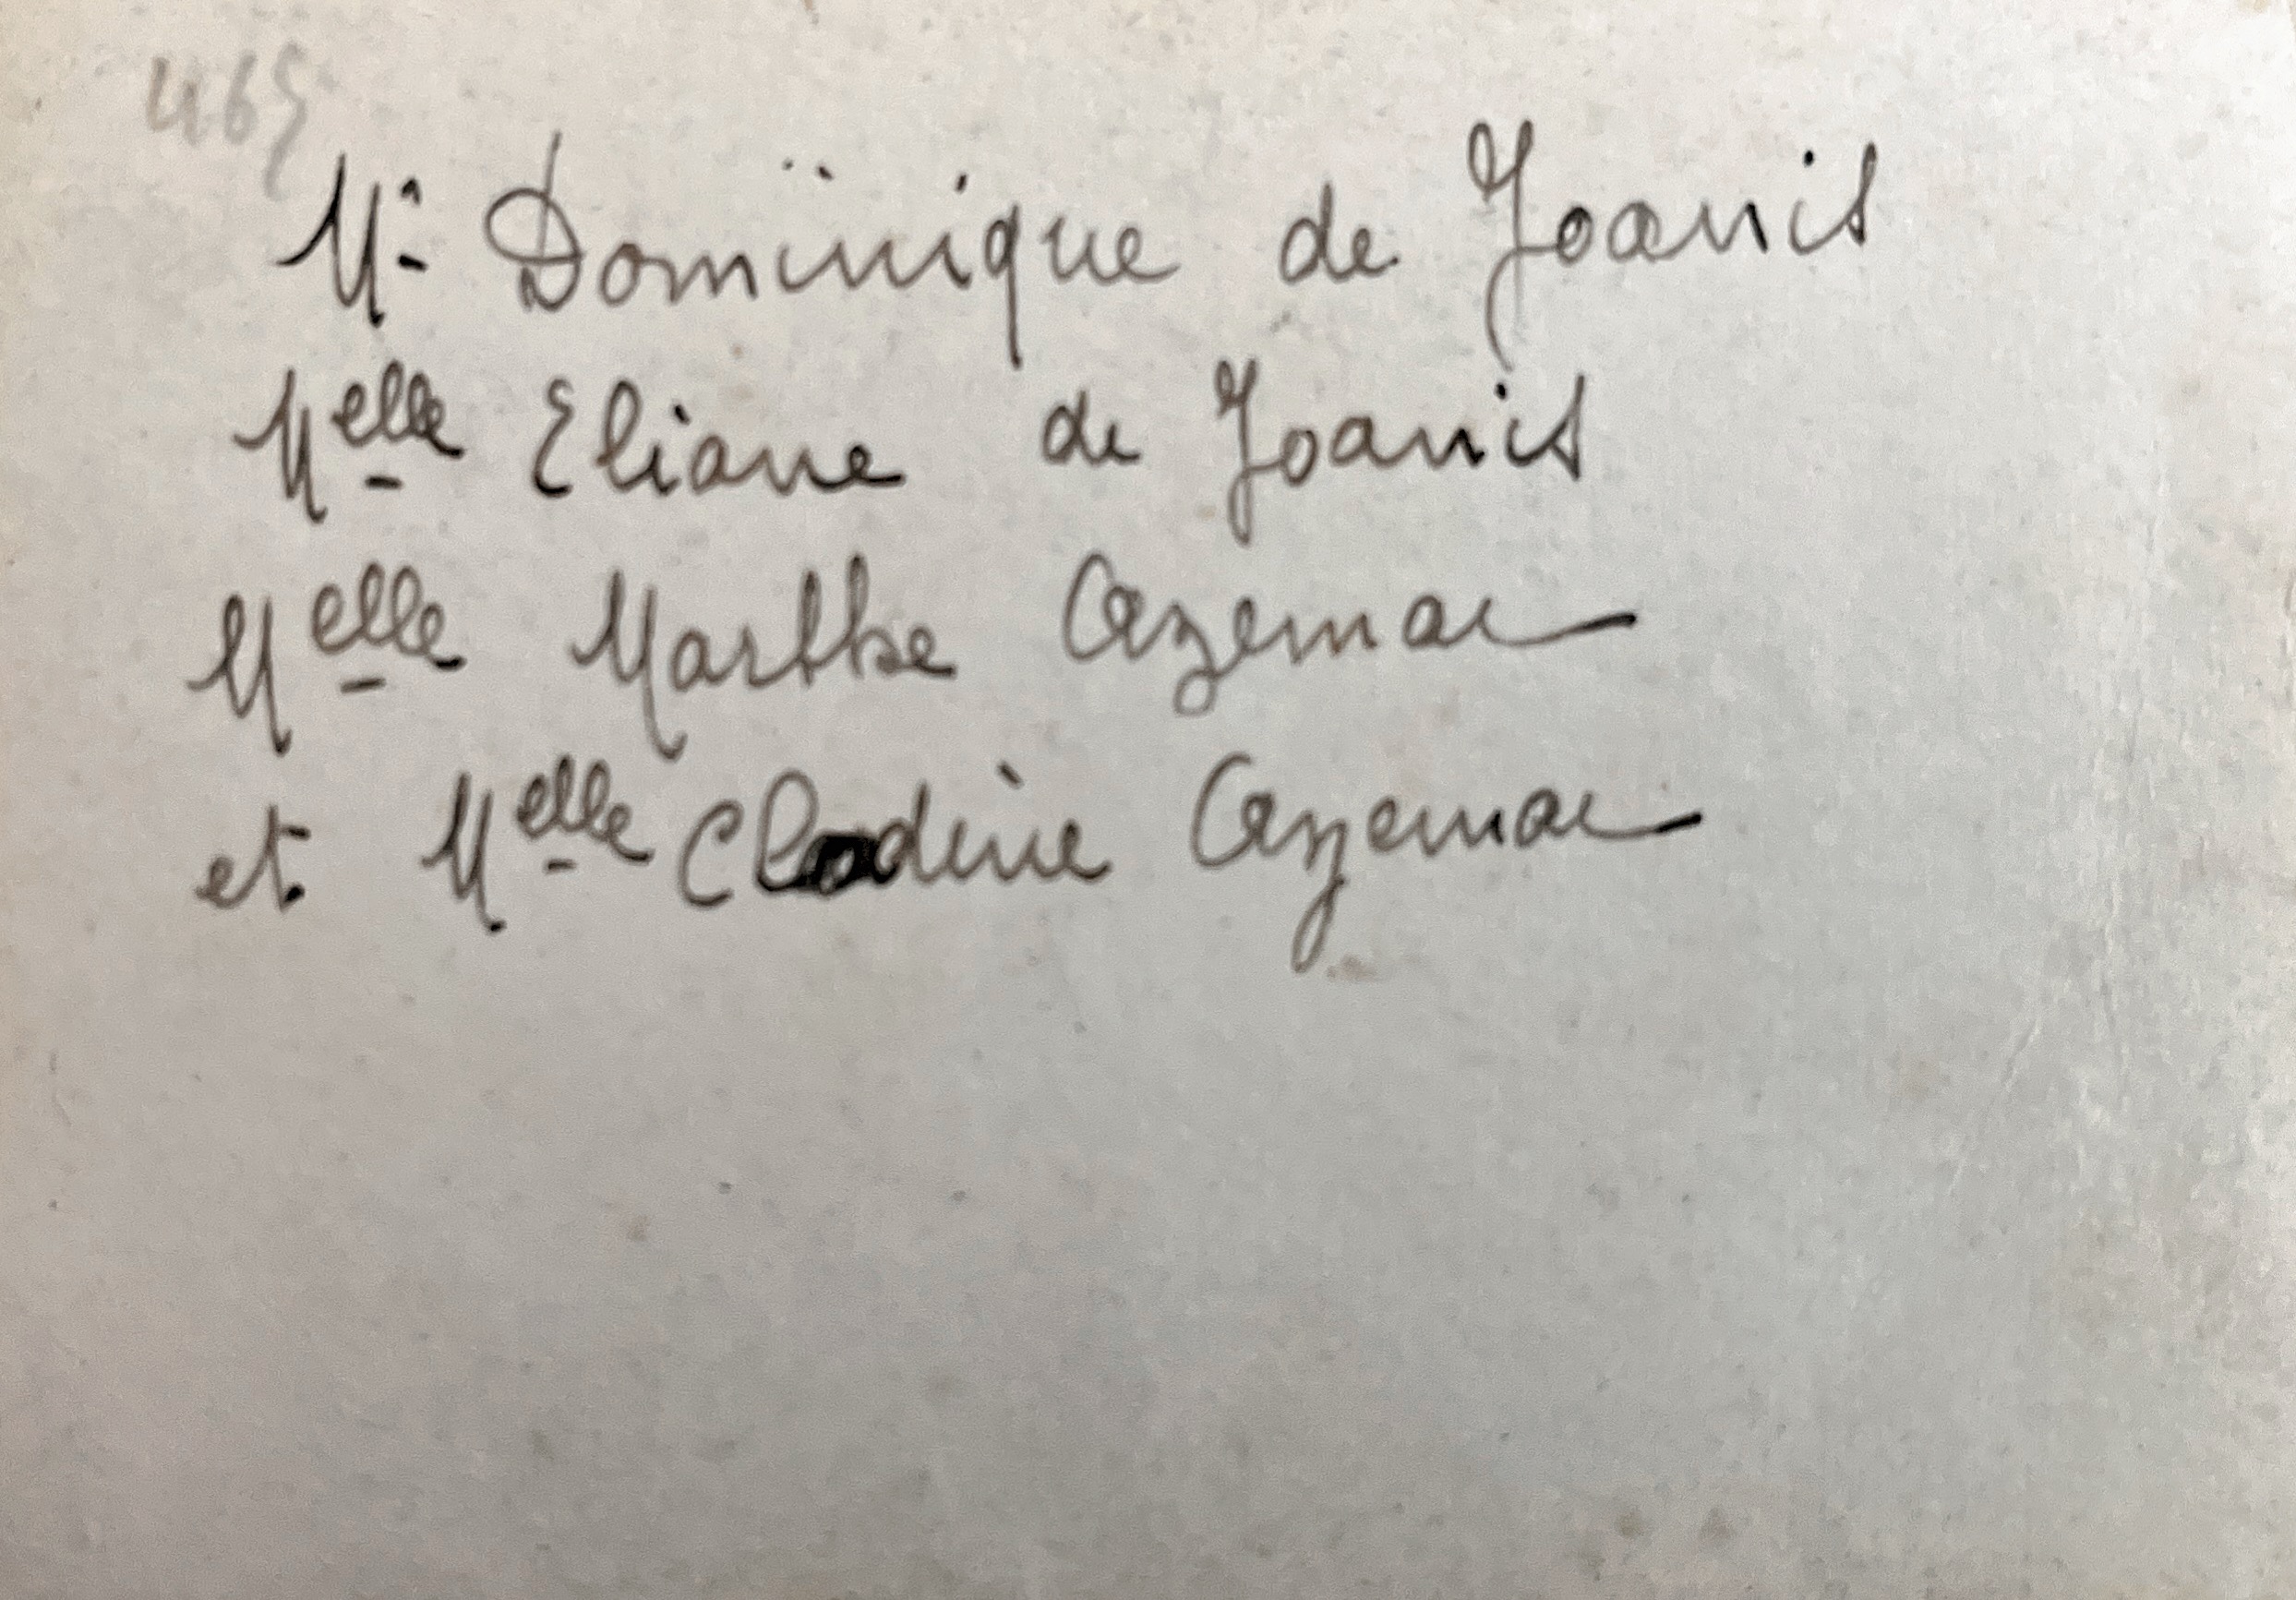 465
Mr Dominique de Joanis
Melle Eliane de Joanis
Melle Marthe Azemar
et Melle Clodine Azemar